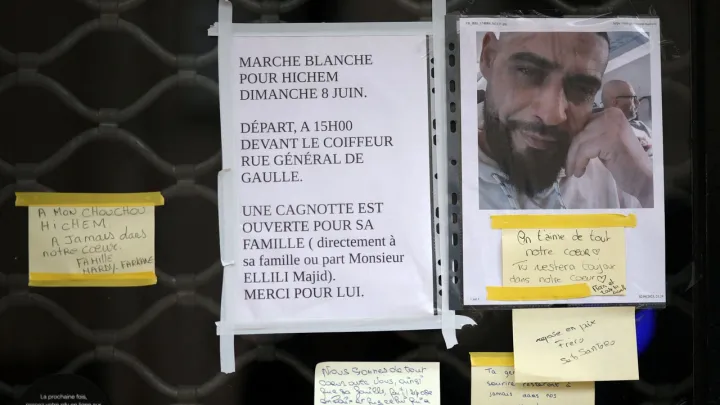 MARCHE BLANCHE
POUR HICHEM
DIMANCHE 8 JUIN.
DÉPART, A 15H00
DEVANT LE COIFFEUR
RUE GÉNÉRAL DE
GAULLE.
UNE CAGNOTTE EST
OUVERTE POUR SA
FAMILLE ( directement à
sa famille ou part Monsieur
ELLILI Majid).
MERCI POUR LUI.
A MON CHOUCHOU
HICHEM
A Jamais dans
notre coeur.
FAMILLE
On t'aime de tout
notre coeur
Tu restera toujour
dans notre coeur
repose en paix
Frero
Nous sommes de tout
coeur avec vous, ainsi
que sa famille,
Ta
sourire
jamais dans nos
La prochaine fois,